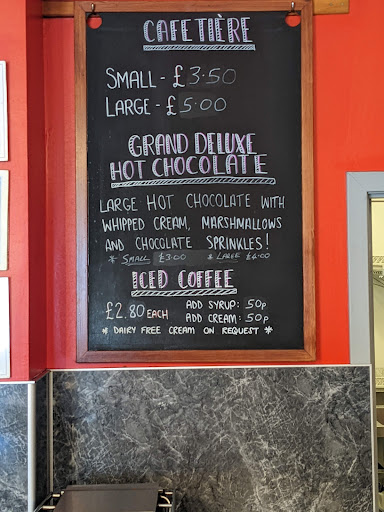 CAFETIÈRE
SMALL - £3.50
LARGE - £5.00
GRAND DELUXE
HOT CHOCOLATE
LARGE HOT CHOCOLATE WITH
WHIPPED CREAM, MARSHMALLOWS
AND CHOCOLATE SPRINKLES!
* SMALL £3.00 * LARGE £4.00
ICED COFFEE
£2.80 EACH ADD SYRUP: 50p
ADD CREAM: 50p
* DAIRY FREE CREAM ON REQUEST *